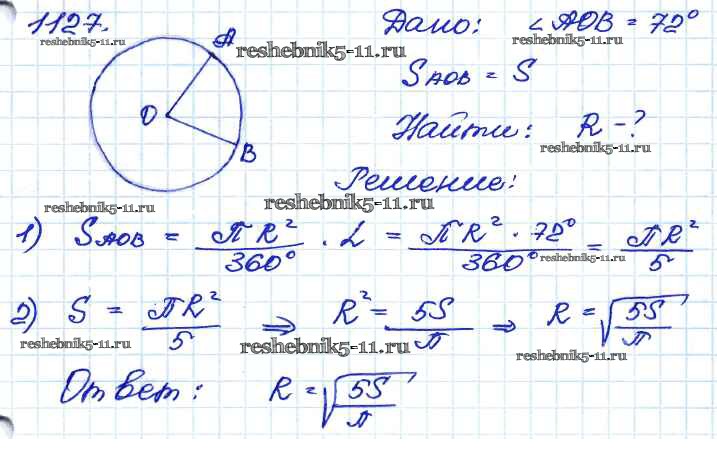 1127.
A
O
B
reshebnik5-11.ru
reshebnik5-11.ru
reshebnik5-11.ru
Дано: ∠AOB = 72°
reshebnik5-11.ru
S AOB = S
Найти: R - ?
reshebnik5-11.ru
reshebnik5-11.ru
Решение:
1) S AOB = πR²/360° · L = πR² · 72°/360° = πR²/5
reshebnik5-11.ru
2) S = πR²/5 ⇒ R² = 5S/π ⇒ R = √(5S/π)
reshebnik5-11.ru
reshebnik5-11.ru
reshebnik5-11.ru
Ответ: R = √(5S/π)